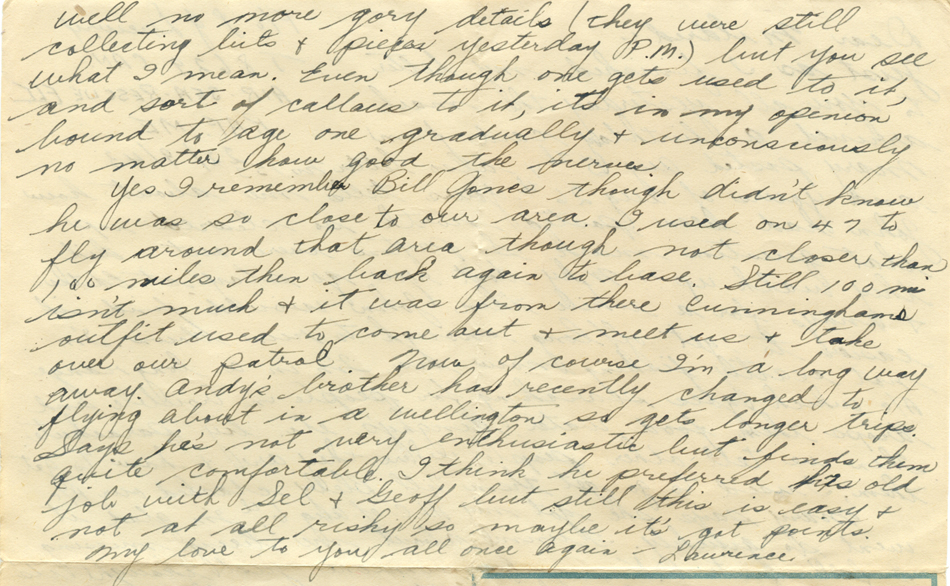 well no more gory details (they were still
collecting bits & pieces yesterday P.M.) but you see
what I mean. Even though one gets used to it,
and sort of callous to it, it's in my opinion
bound to age one gradually & unconsciously
no matter how good the nerves.
Yes I remember Bill Jones though didn't know
he was so close to our area. I used on 47 to
fly around that area though not closer than
100 miles then back again to base. Still 100 mi
isn't much & it was from there Cunninghams
outfit used to come out & meet us & take
over our patrol. Now of course I'm a long way
away. Andy's brother has recently changed to
flying about in a wellington so gets longer trips.
Says he's not very enthusiastic but finds them
quite comfortable. I think he preferred his old
job with Sel & Geoff but still this is easy &
not at all risky so maybe it's got points.
My love to you all once again - Lawrence